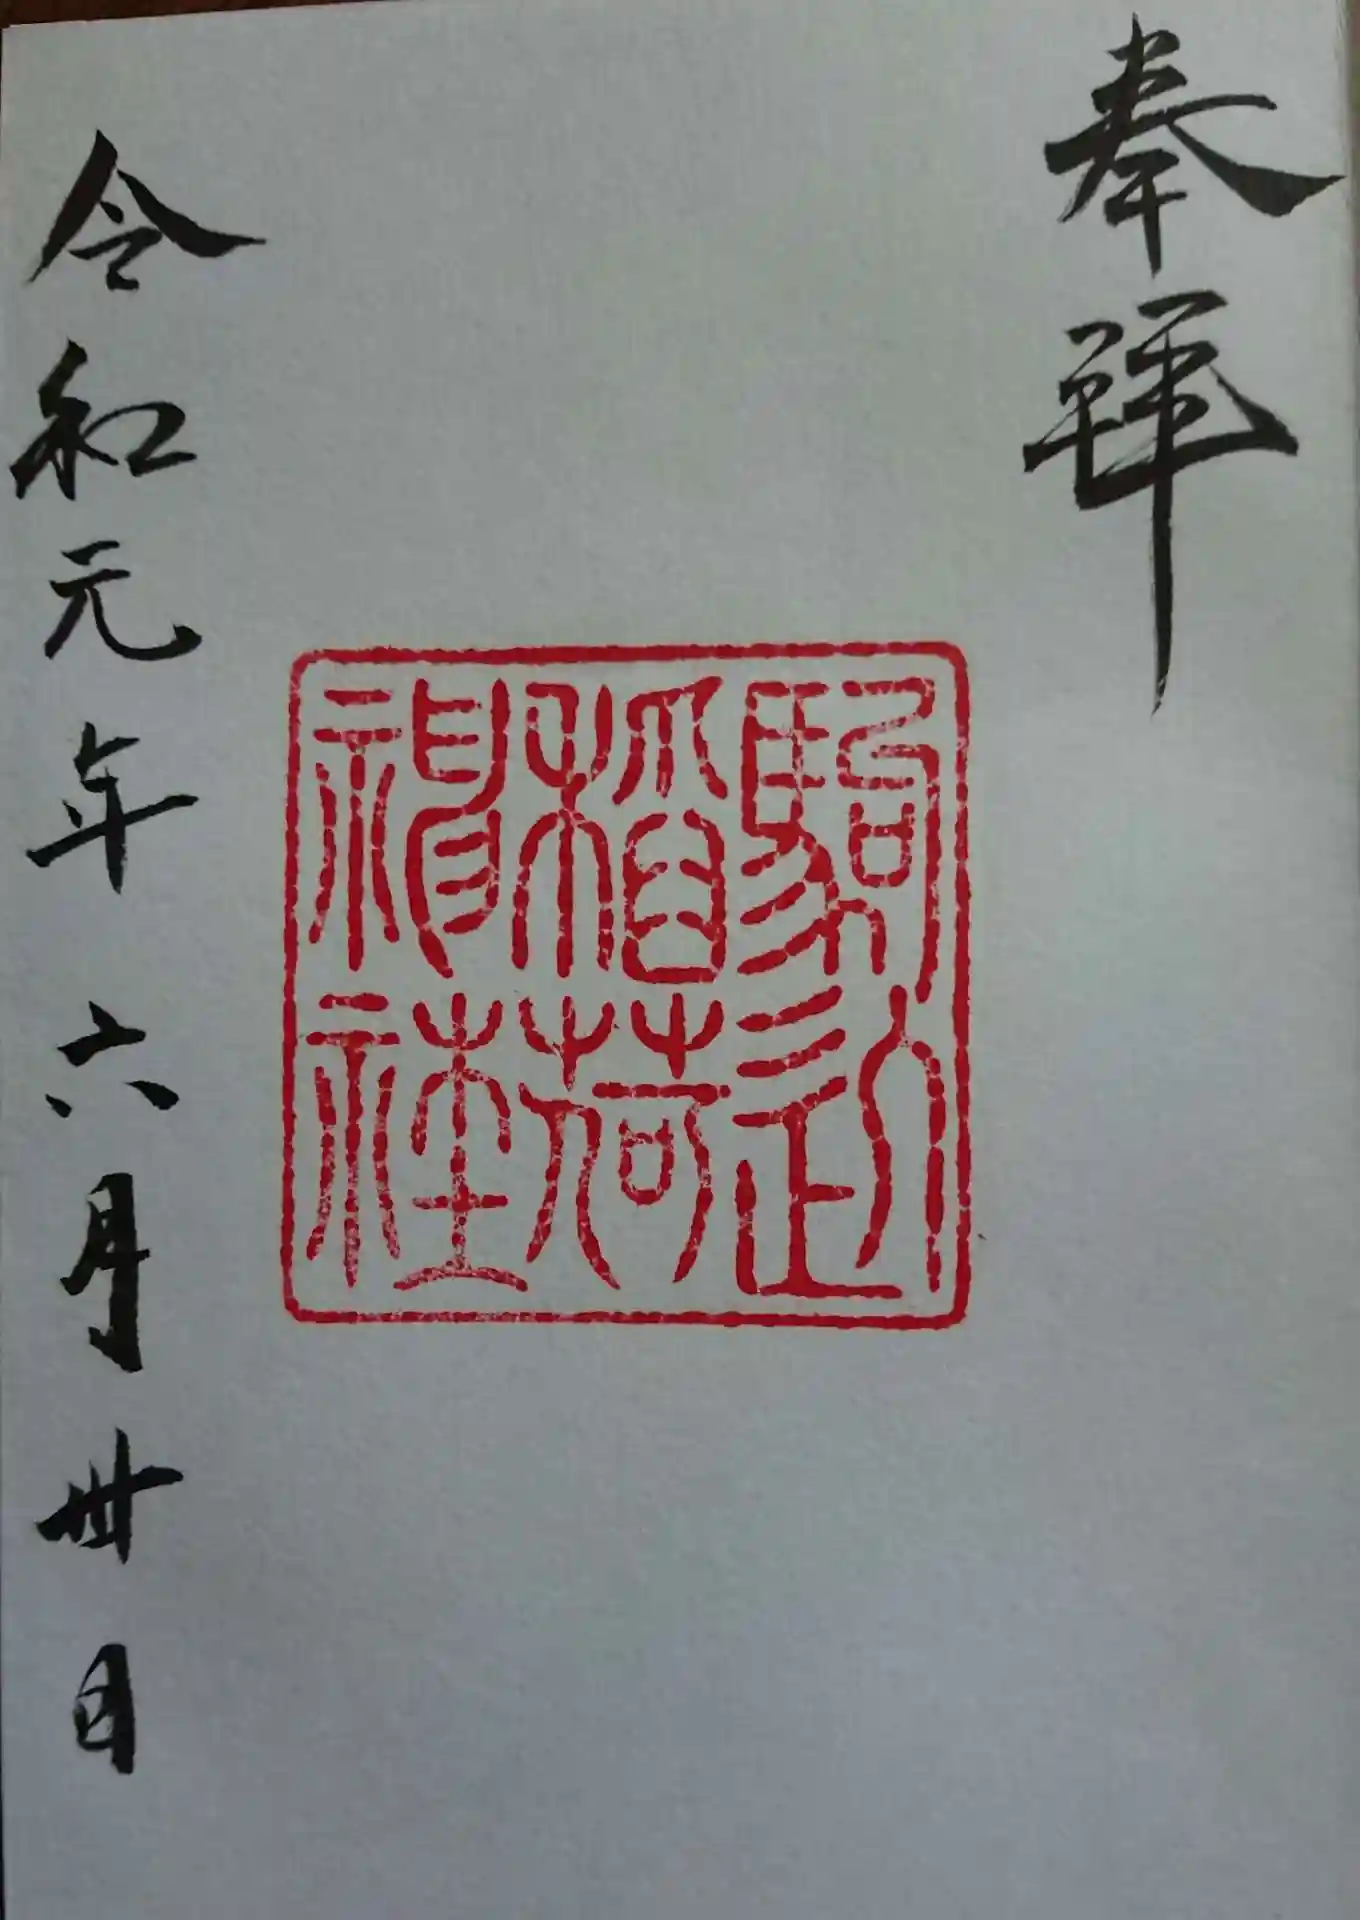 奉拜
駒込
稻荷
神社
令和元年六月卅日